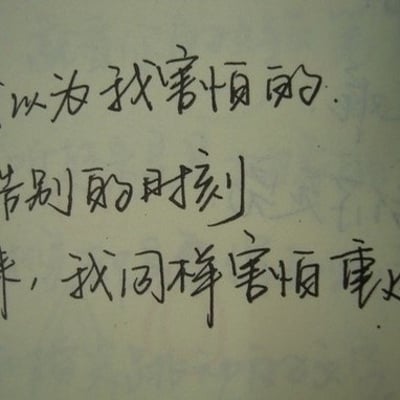 以为我害怕的.
告别的时刻
来，我同样害怕重